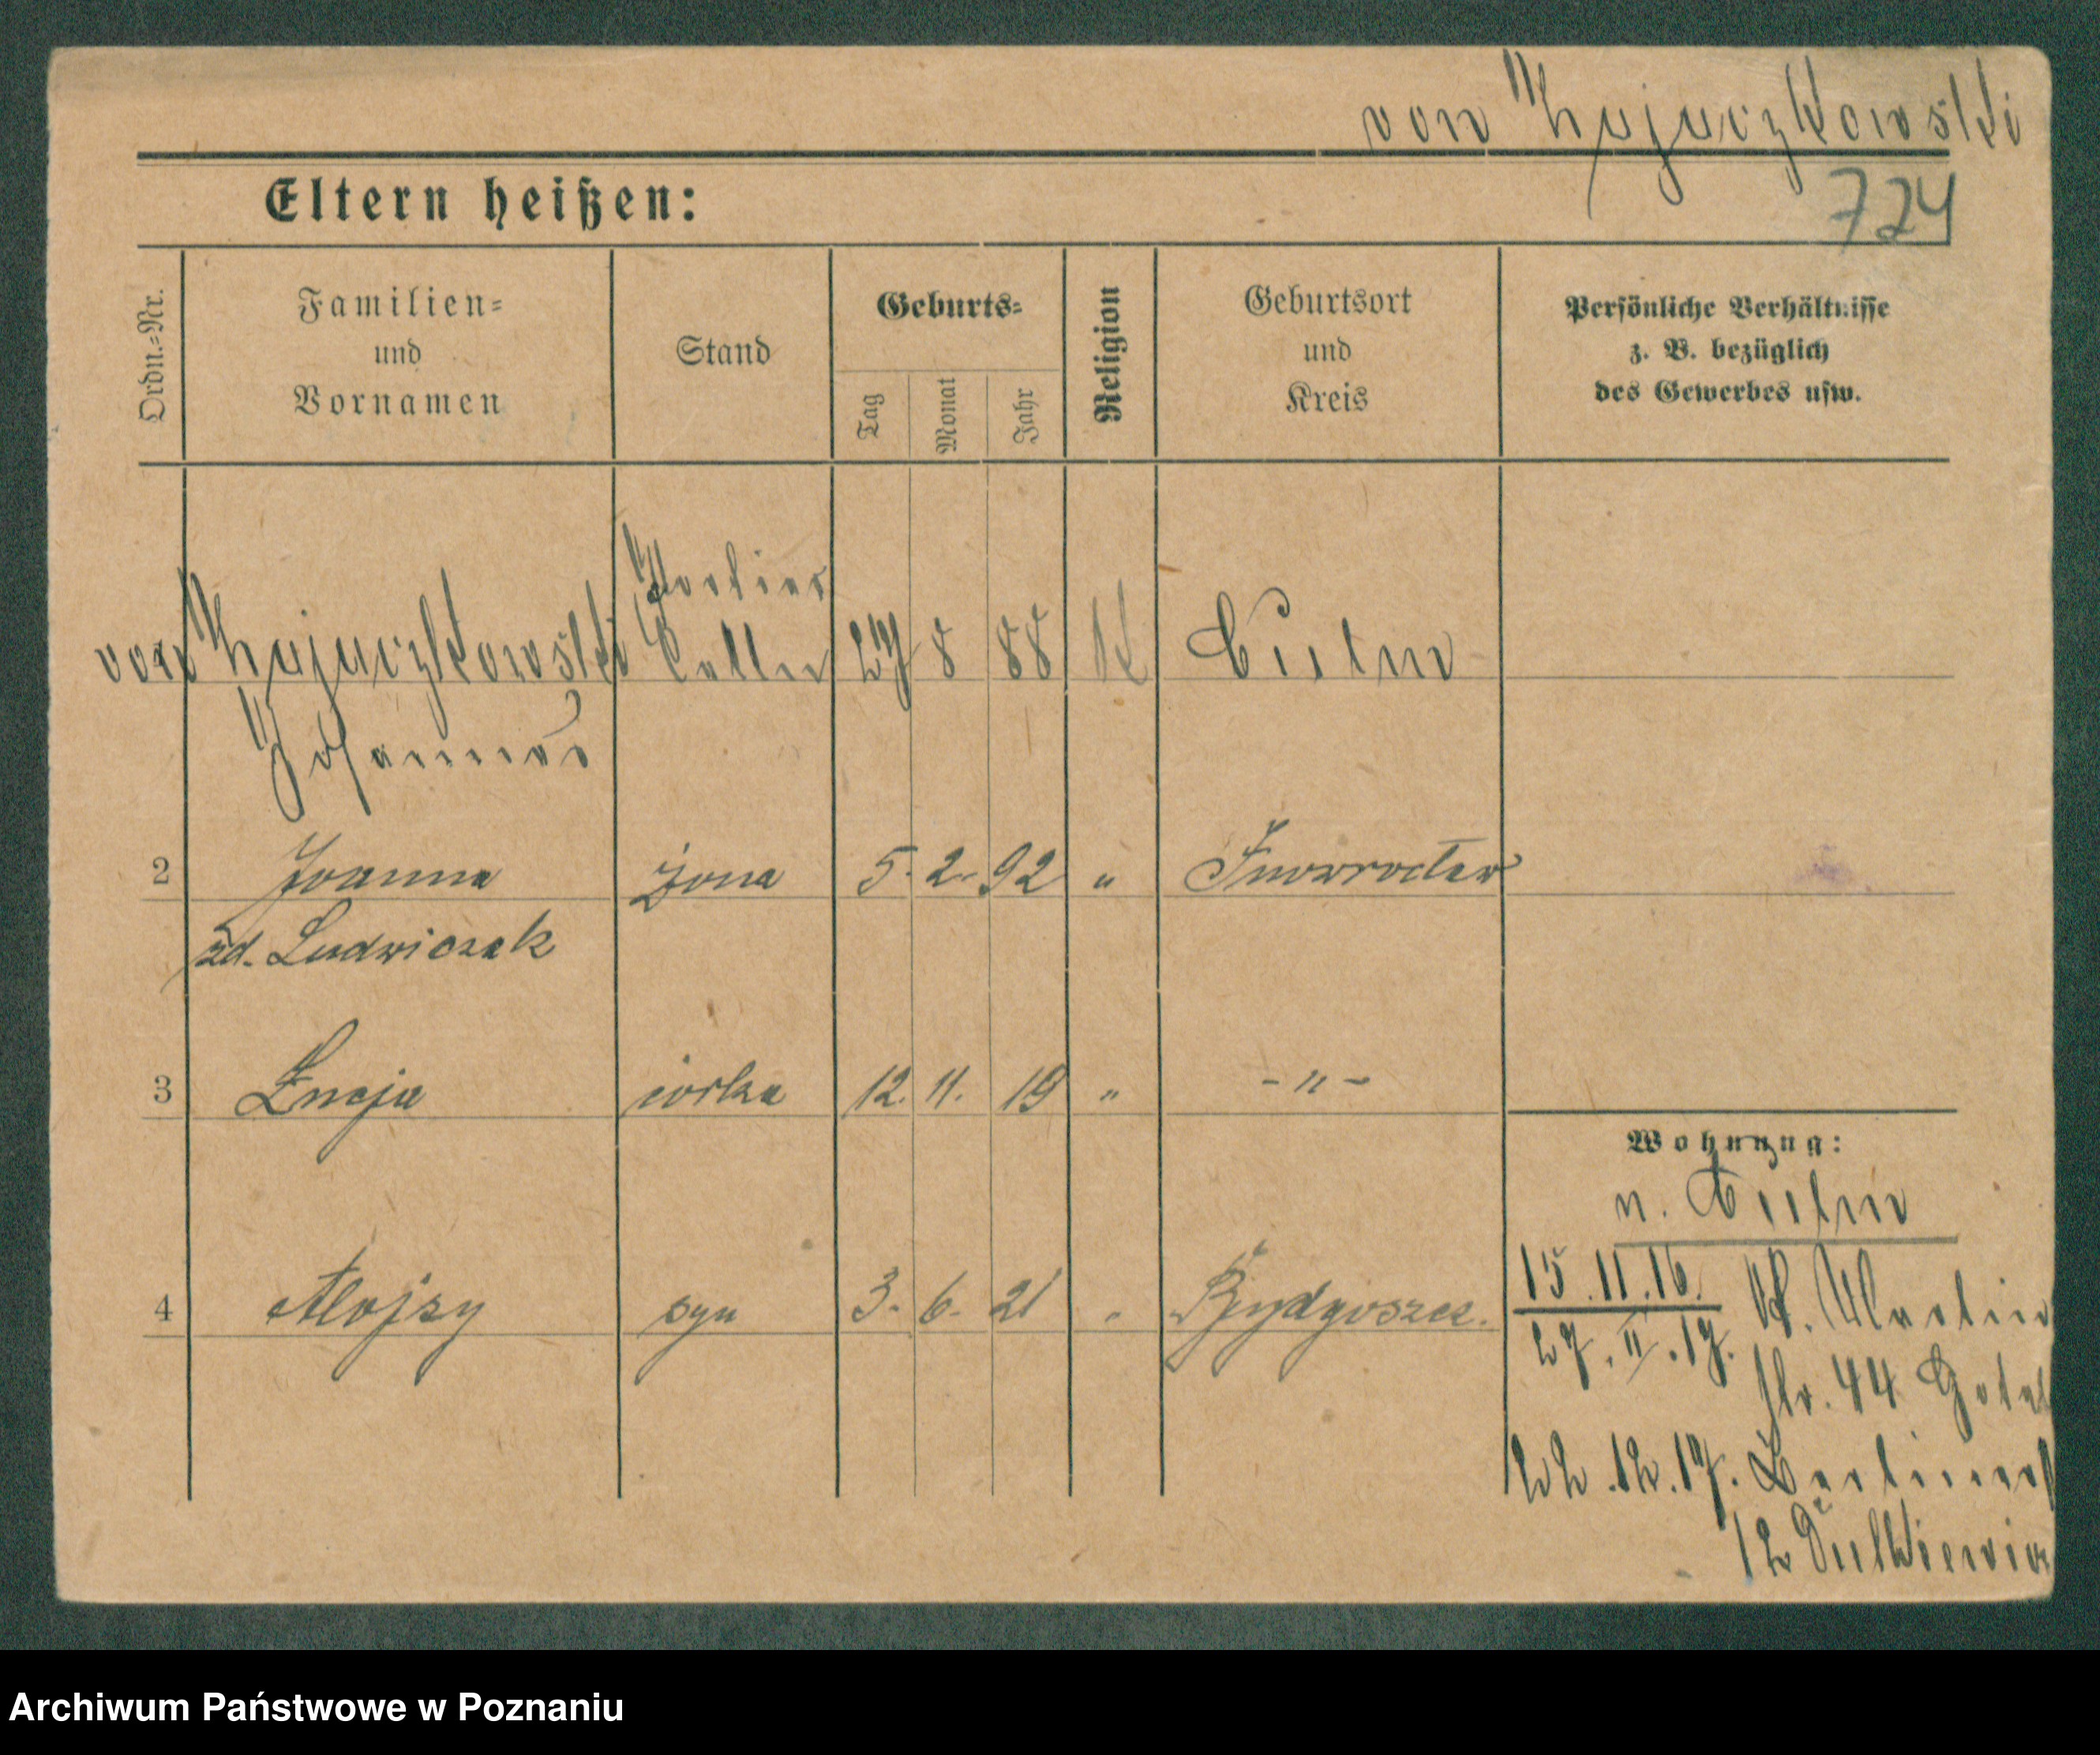 von Kujaczkowski
724
Eltern heißen:
Ordn.-Nr.
Familien-
und
Vornamen
Stand
Geburts-
Tag
Monat
Jahr
Religion
Geburtsort
und
Kreis
Persönliche Verhältnisse
z. B. bezüglich
des Gewerbes usw.
Portier
von Kujaczkowski Kellner 27 8 88 K Culm
Johannes
2 Joanna żona 5. 2. 92 " Inowrocław
zd. Ludwiczak
3 Łucja córka 12. 11. 19 " -"-
Wohnung:
n. Culm
4 Alojzy syn 3. 6. 21 " Bydgoszcz.
15.11.16. St. Martin
27.II.17. str. 44 Hotel
22.12.17. Berlinerst
12
Archiwum Państwowe w Poznaniu